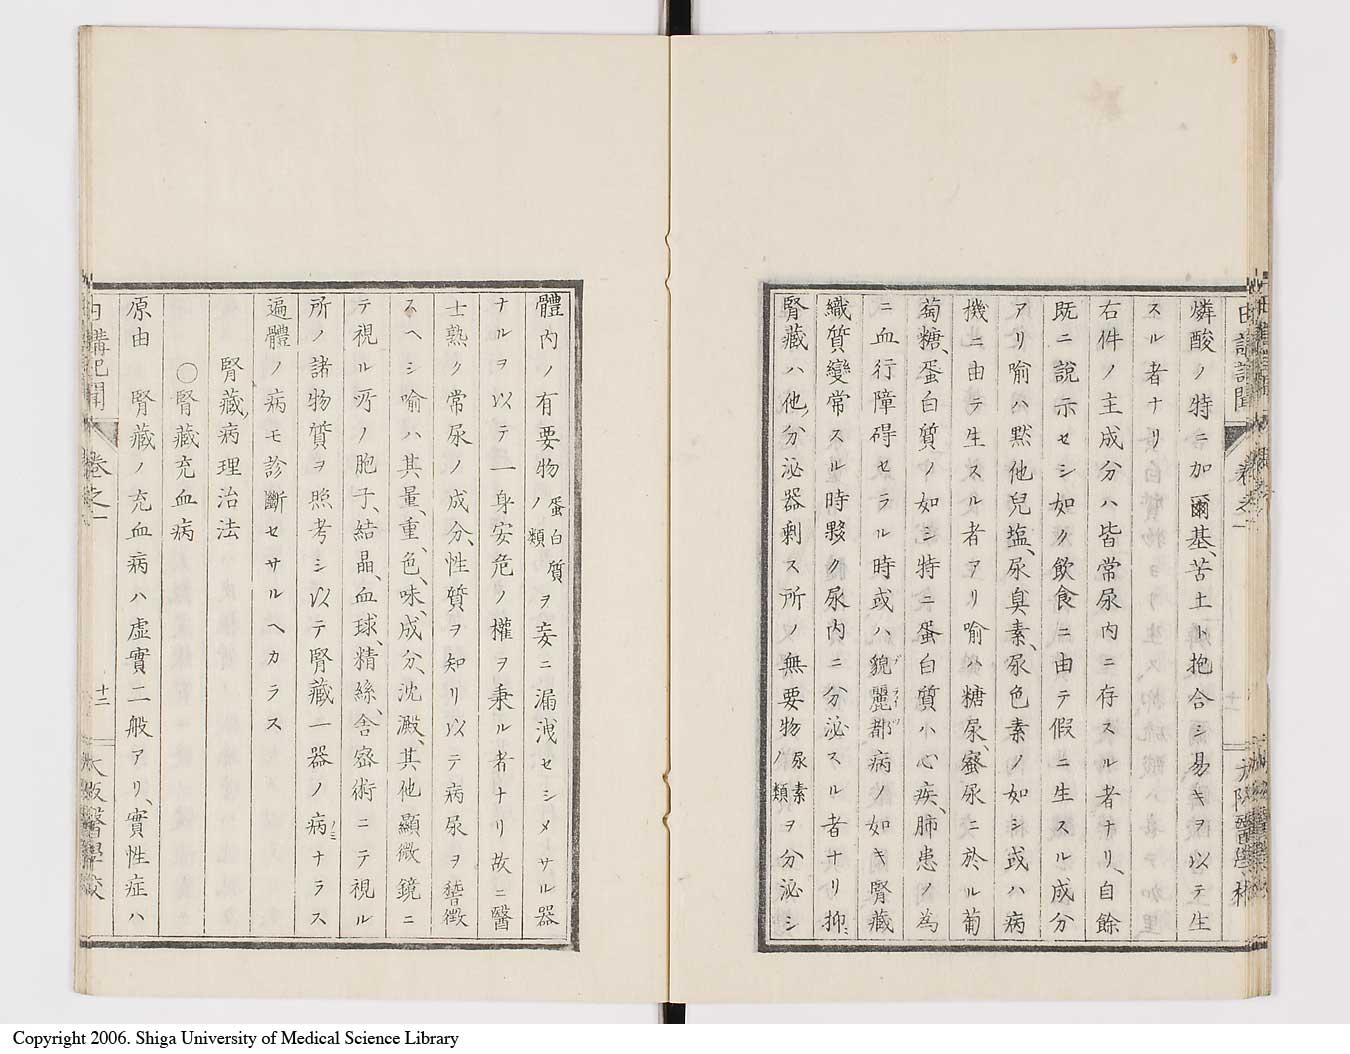 燐酸ノ特ニ加爾基、苦土ト抱合シ易キヲ以テ生
スル者ナリ
右件ノ主成分ハ皆常尿内ニ存スル者ナリ、自餘
既ニ説示セシ如ク飲食ニ由テ假ニ生スル成分
アリ喩ハ黙他兒塩、尿臭素、尿色素ノ如シ或ハ病
機ニ由テ生スル者アリ喩ハ糖尿、蜜尿ニ於ル葡
萄糖、蛋白質ノ如シ特ニ蛋白質ハ心疾、肺患ノ為
ニ血行障碍セラル時或ハ貌麗都病ノ如キ腎藏
織質變常スル時夥ク尿内ニ分泌スル者ナリ抑
腎藏ハ他ノ分泌器剩ス所ノ無要物尿素ノ類ヲ分泌シ
體内ノ有要物蛋白質ノ類ヲ妄ニ漏洩セシメサル器
ナルヲ以テ一身安危ノ權ヲ秉ル者ナリ故ニ醫
士熟ク常尿ノ成分、性質ヲ知リ以テ病尿ヲ徴
スヘシ喩ハ其量、重、色、味、成分、沈澱、其他顯微鏡ニ
テ視ル所ノ胞子、結晶、血球、精絲、舎密術ニテ視ル
所ノ諸物質ヲ照考シ以テ腎藏一器ノ病ノミナラス
遍體ノ病モ診斷セサルヘカラス
腎藏病理治法
〇腎藏充血病
原由 腎藏ノ充血病ハ虚實二般アリ、實性症ハ
日講記聞 卷之一 十二 大阪醫學校
Copyright 2006. Shiga University of Medical Science Library